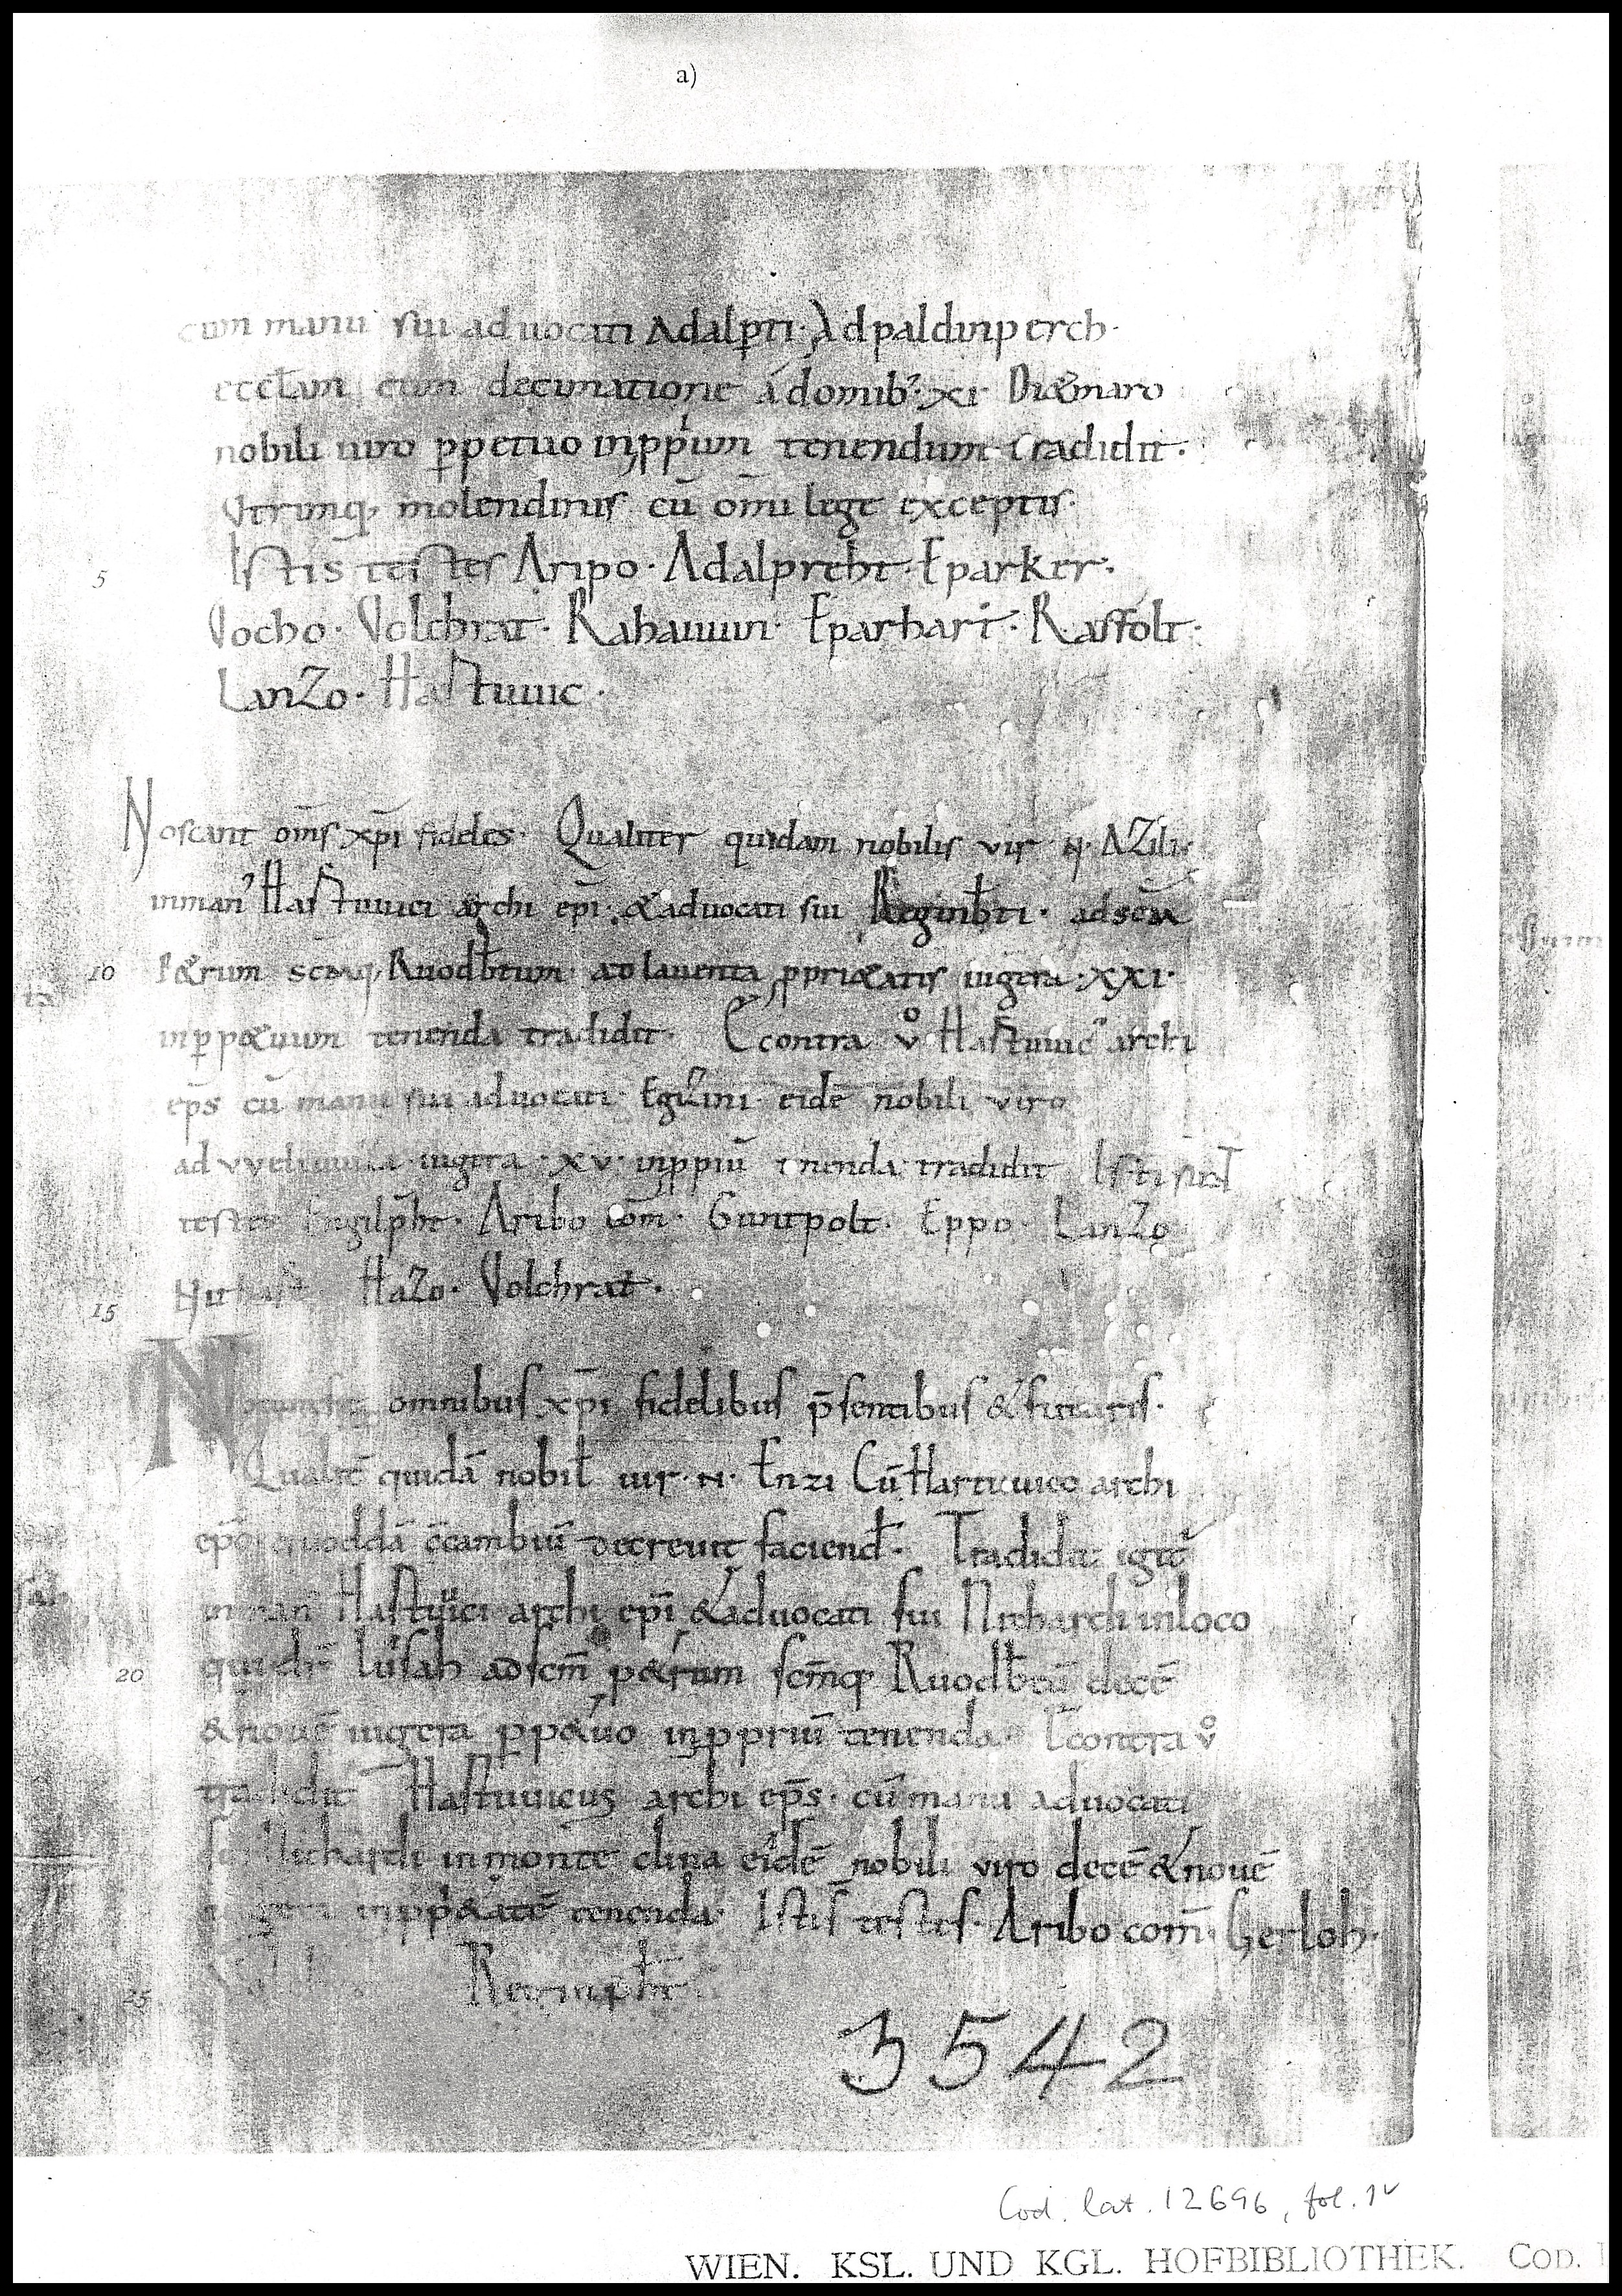 a)
cum manu sui aduocati Adalp̱ti. Ad paldinperch.
eccl̄am cum decimatione a domib; xi Di&maro
nobili uiro p̱petuo inpp̱ium tenendum tradidit.
Vtrimq, molendinis cū om̄i lege exceptis.
5 Istis testes Aripo. Adalpreht. Eparker.
Vocho. Volchrat. Rahauuin. Eparhart. Raffolt.
LanZo. Hartuuic.
Noscant om̄s xp̄i fideles. Qualiter quidam nobilis vir .N. AZili.
inman' Hartuuici archi ep̄i. &aduocati sui Reginb̄ti. ad sc̄m
10 P&rum sc̄mq, Ruodb̄tum ad lauenta, ppri&atis iugera .XXI.
inp̱p&uum tenenda tradidit. Econtra v° Hartuuic' archi
ep̄s cū manu sui aduocati eidē nobili viro
ad iugera .xv. inppriū tenenda tradidit Isti sunt
testes Engilp̄ht. Aribo com̄. Guntpolt. Eppo. LanZo
15 HaZo. Volchrat.
Notum sit omnibus xp̄i fidelibus p̄sentibus & futuris.
Qualit̄ quidā nobil̄ uir .N. Enzi Cū Hartuuico archi
ep̄o quoddā c̄cambiū decreuit faciend̄. Tradidit igit̄
in man' Hartuuici archi ep̄i &aduocati sui Nithardi inloco
20 qui dr̄ lusah ad sc̄m p&rum sc̄mq Ruodb̄tū decē
&nouē iugera p̱p&uo inppriū tenenda. Econtra v°
tradidit Hartuuicus archi ep̄s. cū manu aduocati
sui Nithardi inmonte clina eidē nobili viro decē &nouē
iugera inppri&atē tenenda. Istis testes. Aribo com̄. Gerloh.
25 Reginp̄ht
3542
Cod. lat. 12696, fol. 1v
WIEN. KSL. UND KGL. HOFBIBLIOTHEK. COD.